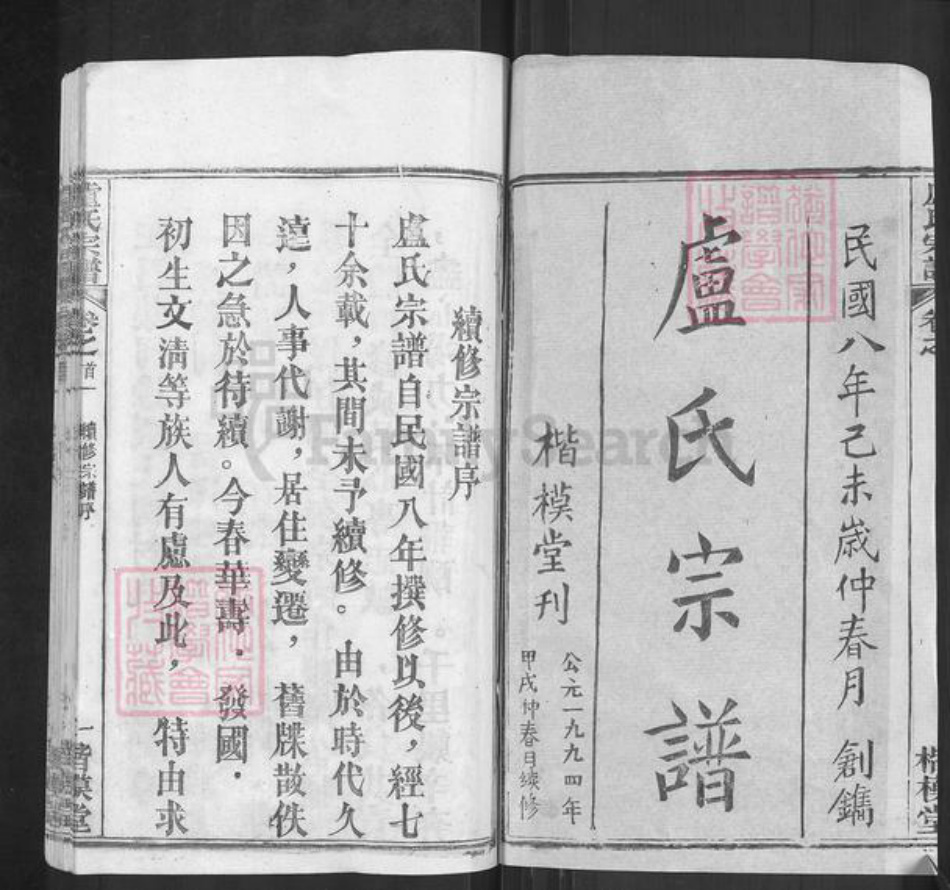 民國八年己未歲仲春月 創鐫
盧氏宗譜
楷模堂刊
公元一九九四年
甲戌仲春日续修
續修宗譜序
盧氏宗譜自民國八年撰修以後，經七
十余載，其間未予續修。由於時代久
遠，人事代謝，居住變遷，舊牒散佚
因之急於待續。今春華壽．發國．
初生文清等族人有慮及此，特由求
盧氏宗譜
卷之首
續修宗譜序
一
楷模堂
FamilySearch